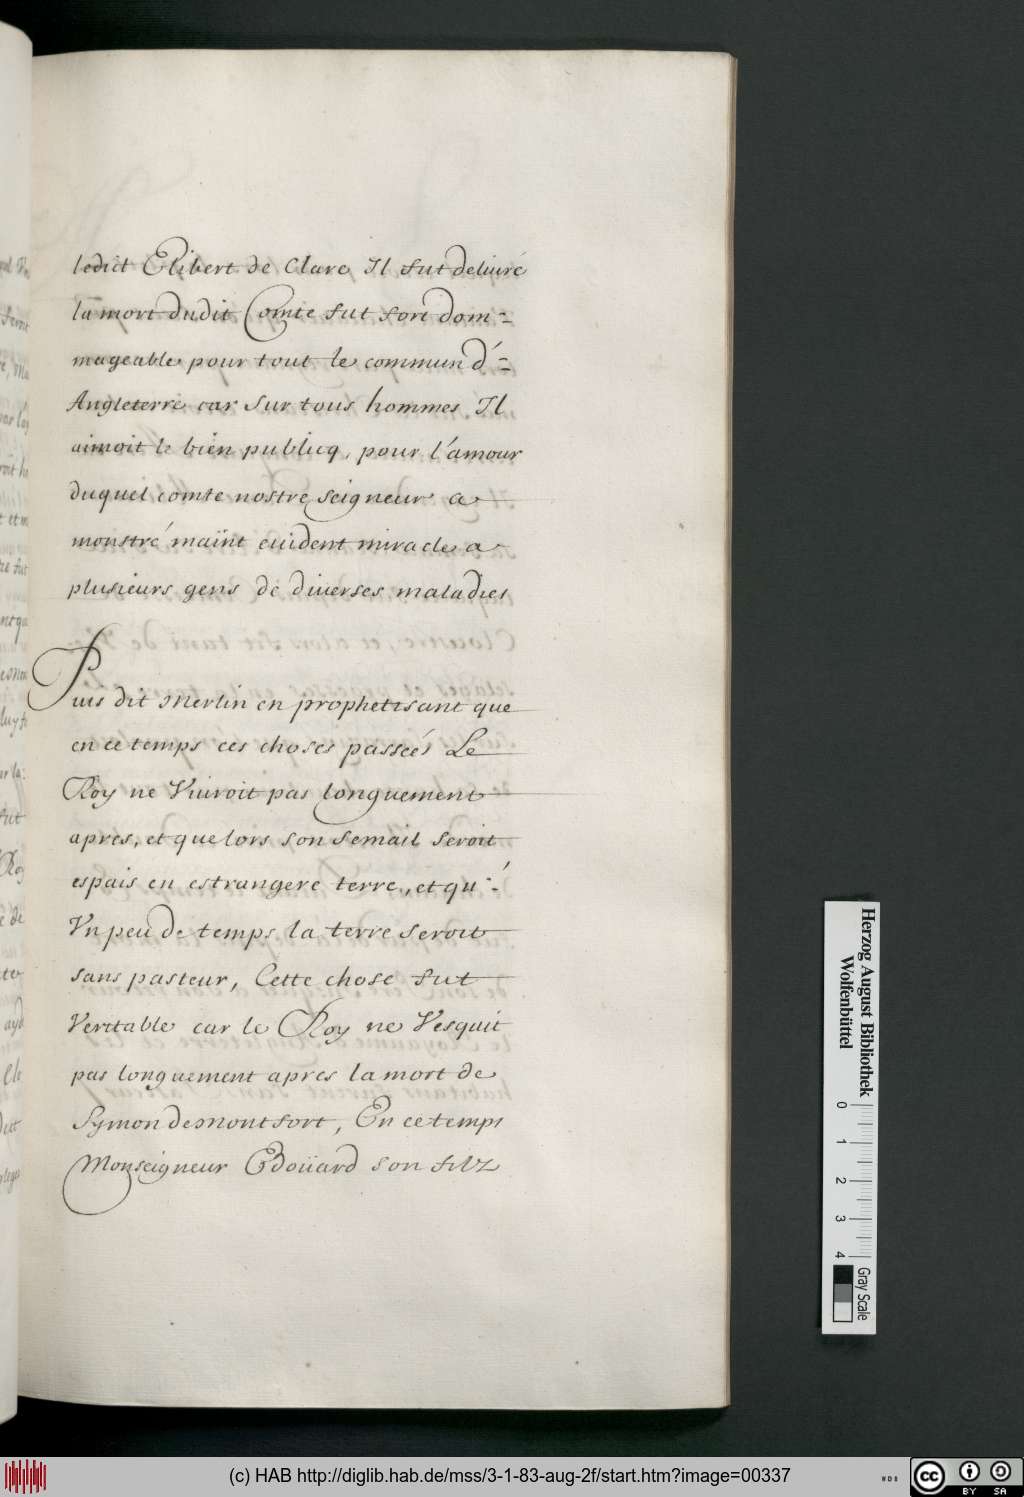 ledict Elibert de Clare Il fut deliuré
la mort dudit Comte fut fort dom-
mageable pour tout le commun d'-
Angleterre car sur tous hommes Il
aimoit le bien publicq, pour l'amour
duquel comte nostre seigneur a
monstré maint euident miracle a
plusieurs gens de diuerses maladies
Puis dit Merlin en prophetisant que
en ce temps ces choses passeés Le
Roy ne Viuroit pas longuement
apres, et que lors son semail seroit
espais en estrangere terre, et qu'-
Vn peu de temps la terre seroit
sans pasteur, Cette chose fut
Veritable car le Roy ne Vesquit
pas longuement apres la mort de
Symon de Montfort, En ce temps
Monseigneur Edoüard son filz
Herzog August Bibliothek
Wolfenbüttel
0 1 2 3 4
Gray Scale
(c) HAB http://diglib.hab.de/mss/3-1-83-aug-2f/start.htm?image=00337
cc BY SA